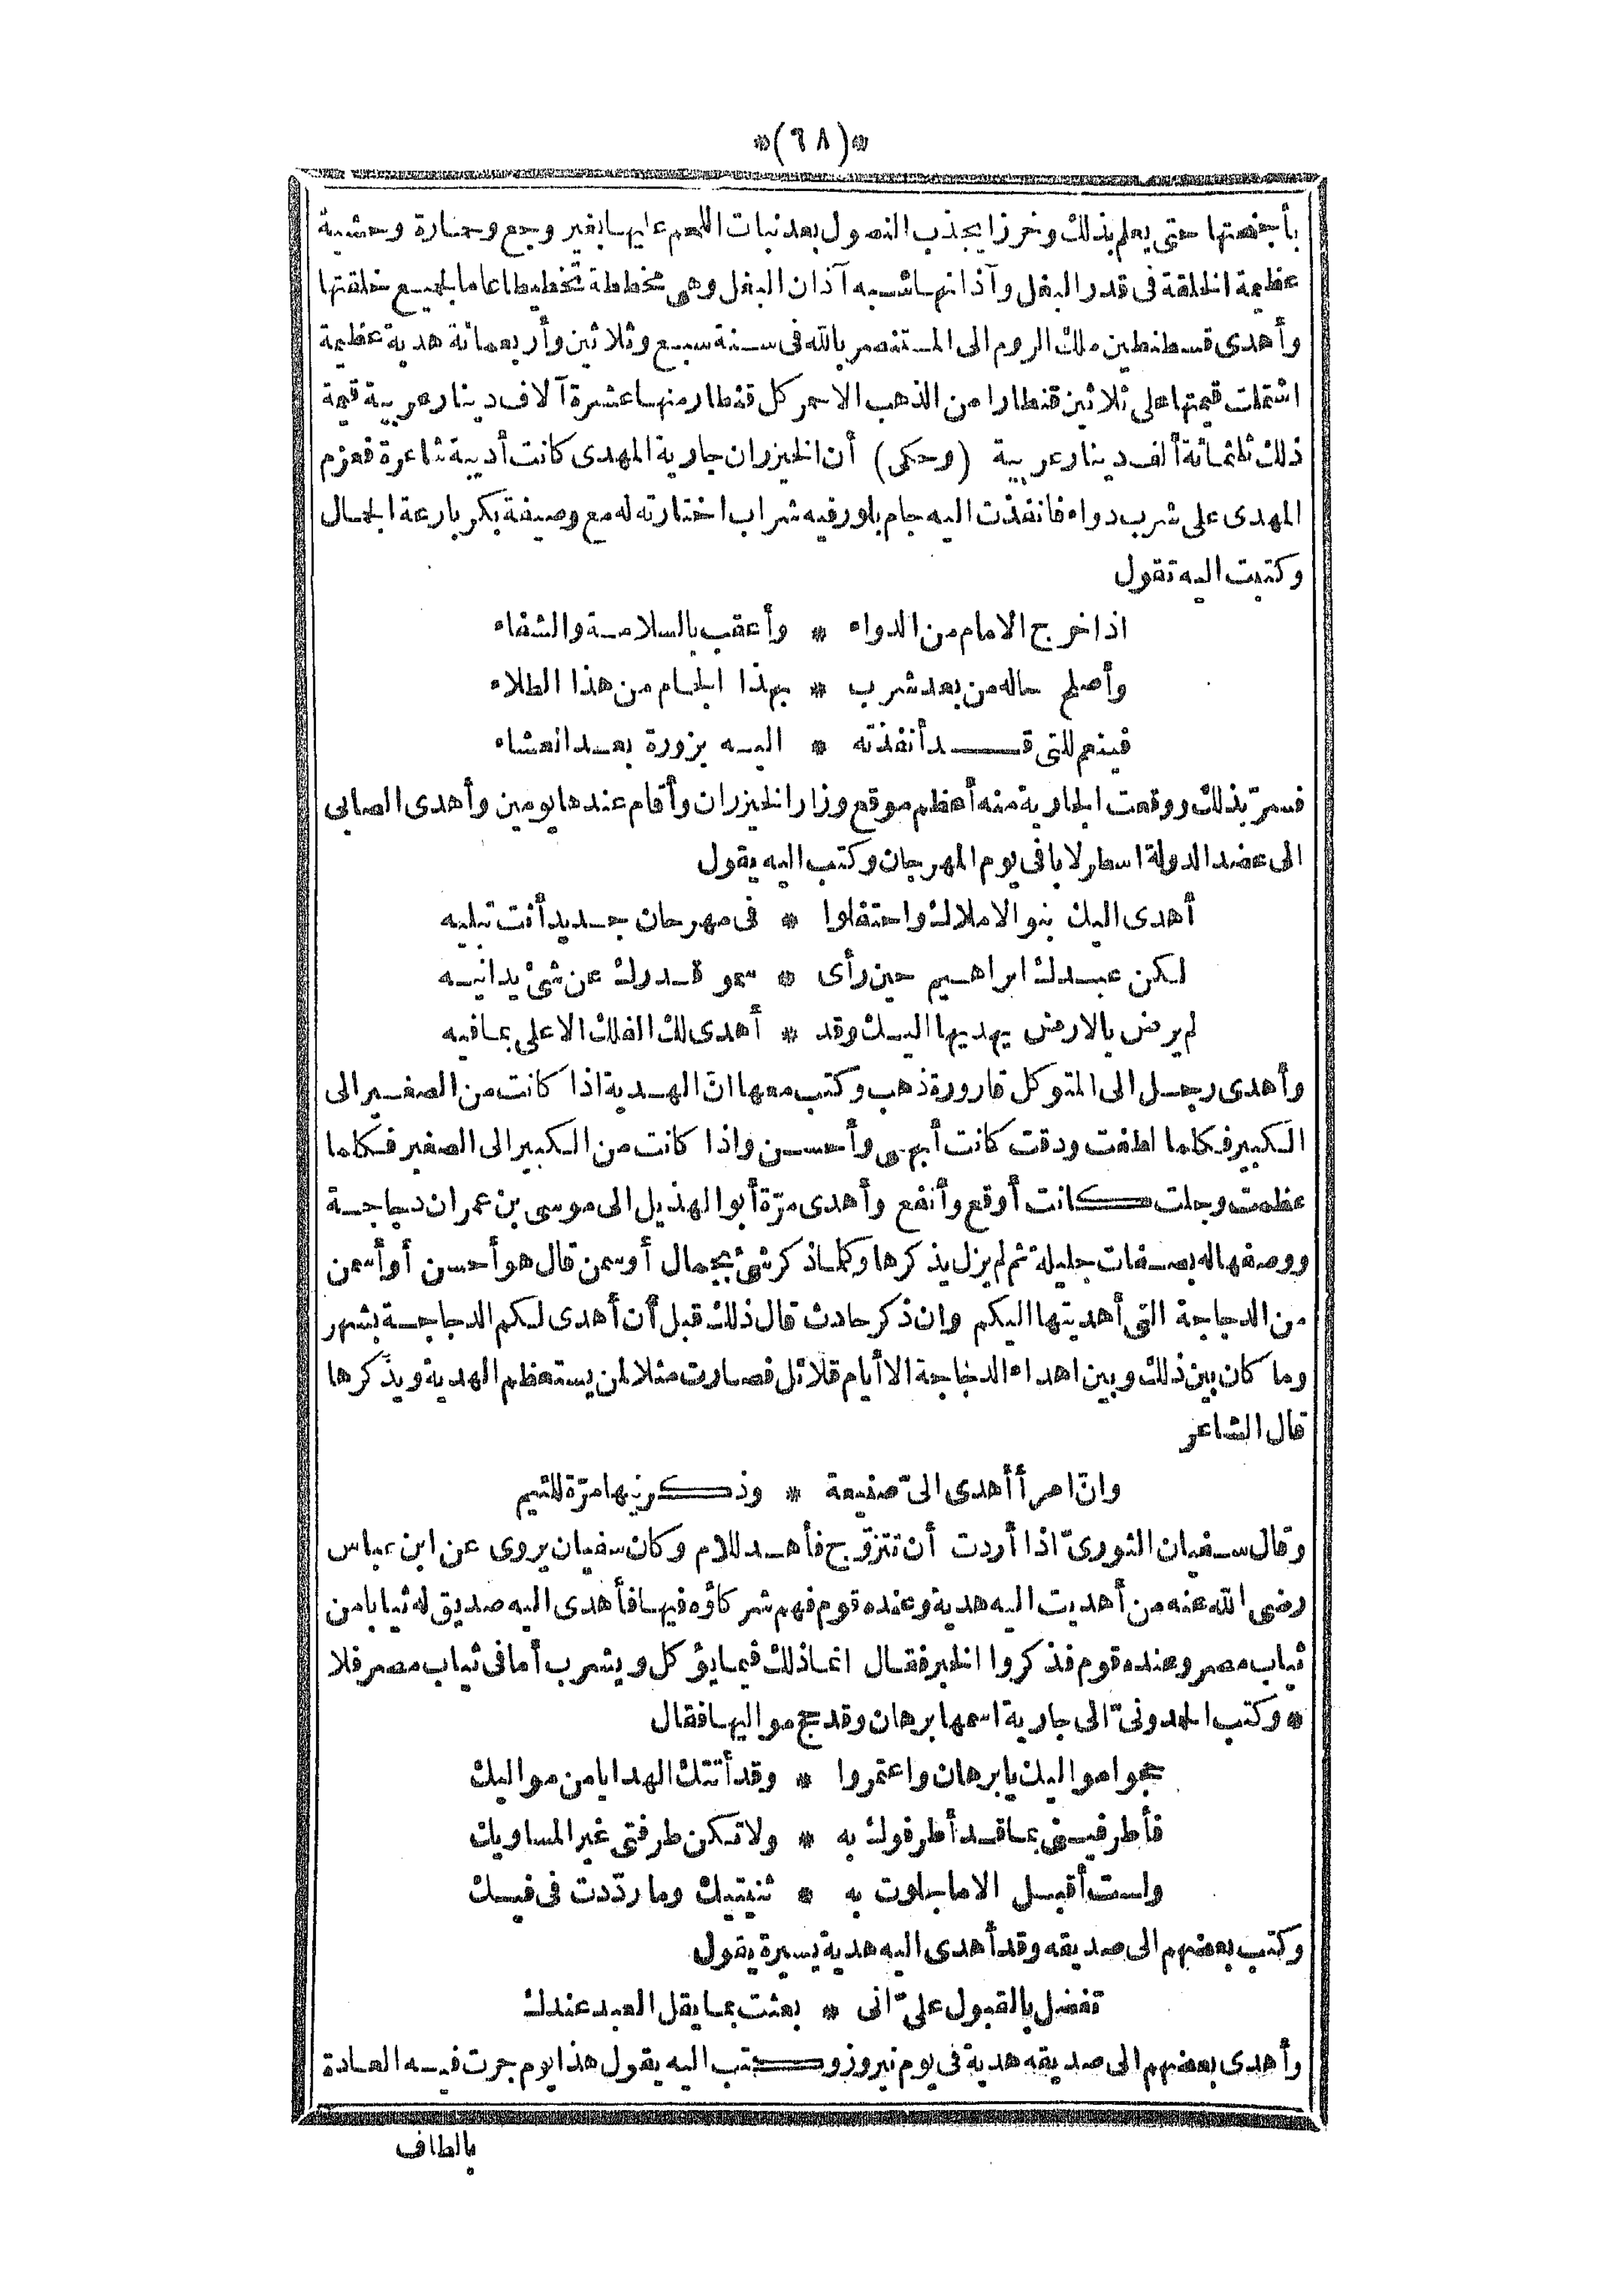 *(٦٨)*
بأجنحتها حتى يعلم بذلك وخرزا يجذب النصول بعد نبات اللحم عليها بغير وجع وحمارة وحشية
عظيمة الخلقة فى قدر البغل وآذانها تشبه آذان البغل وهى مخططة تخطيطا عاما لجميع خلقتها
وأهدى قسطنطين ملك الروم الى المستنصر بالله فى سنة سبع وثلاثين وأربعمائة هدية عظيمة
اشتملت قيمتها على ثلاثين قنطارا من الذهب الاحمر كل قنطار منها عشرة آلاف دينار عربية قيمة
ذلك ثلثمائة ألف دينار عربية (وحكى) أن الخيزران جارية المهدى كانت أديبة شاعرة فعزم
المهدى على شرب دواء فانفذت اليه جام بلور فيه شراب اختارته له مع وصيفة بكر بارعة الجمال
وكتبت اليه تقول
اذا خرج الامام من الدواء * وأعقب بالسلامة والشفاء
وأصلح حاله من بعد شرب * بهذا الجام من هذا الطلاء
فينعم للتى قد أنفذته * اليه بزورة بعد العشاء
فسرّ بذلك ووقعت الجارية منه أعظم موقع وزار الخيزران وأقام عندها يومين وأهدى الصابى
الى عضد الدولة اسطرلابا فى يوم المهرجان وكتب اليه يقول
أهدى اليك بنو الاملاك واحتفلوا * فى مهرجان جديد أنت تبليه
لكن عبدك ابراهيم حين رأى * سمو قدرك عن شئ يدانيه
لم يرض بالارض يهديها اليك وقد * أهدى لك الفلك الاعلى بما فيه
وأهدى رجل الى المتوكل قارورة ذهب وكتب معها ان الهدية اذا كانت من الصغير الى
الكبير فكلما لطفت ودقت كانت أبهى وأحسن واذا كانت من الكبير الى الصغير فكلما
عظمت وجلت كانت أوقع وأنفع وأهدى مرّة أبو الهذيل الى موسى بن عمران دجاجة
ووصفها له بصفات جليلة ثم لم يزل يذكرها وكلما ذكر شئ بجمال أو سمن قال هو أحسن أو أسمن
من الدجاجة التى أهديتها اليكم وان ذكر حادث قال ذلك قبل أن أهدى لكم الدجاجة بشهر
وما كان بين ذلك وبين اهداء الدجاجة الا أيام قلائل فصارت مثلا لمن يستعظم الهدية ويذكرها
قال الشاعر
وانّ امرأ أهدى الىّ صنيعة * وذكرنيها مرّة للئيم
وقال سفيان الثورىّ اذا أردت أن تتزوّج فأهد للام وكان سفيان يروى عن ابن عباس
رضى الله عنه من أهديت اليه هدية وعنده قوم فهم شركاؤه فيها فأهدى اليه صديق له ثيابا من
ثياب مصر وعنده قوم فذكروا الخبر فقال انما ذلك فيما يؤكل ويشرب أما فى ثياب مصر فلا
* وكتب الحمدونىّ الى جارية اسمها برهان وقد حج مواليها فقال
حجوا مواليك يا برهان واعتمروا * وقد أتتك الهدايا من مواليك
فأطرفينى بما قد أطرفوك به * ولا تكن طرفتى غير المساويك
ولست أقبل الا ما جلوت به * ثنيتيك وما ردّدت فى فيك
وكتب بعضهم الى صديقه وقد أهدى اليه هدية يسيرة يقول
تفضل بالقبول علىّ انى * بعثت بما يقل العبد عندك
وأهدى بعضهم الى صديقه هدية فى يوم نيروز وكتب اليه يقول هذا يوم جرت فيه العادة
بالطاف